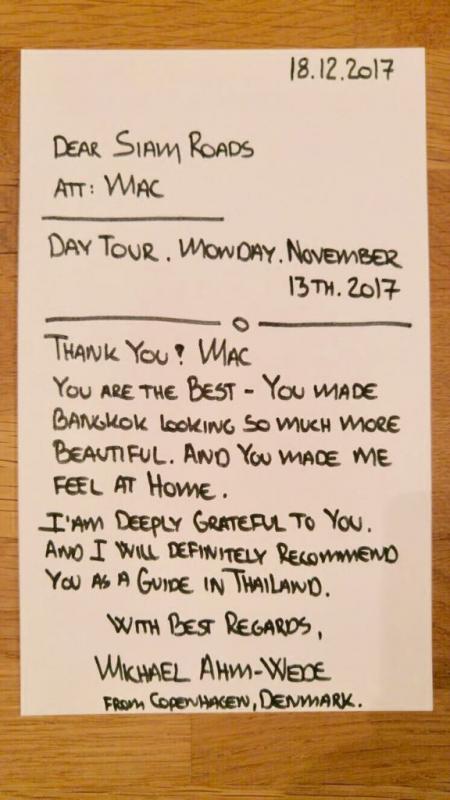 18.12.2017
DEAR SIAM ROADS
ATT: MAC
DAY TOUR. MONDAY. NOVEMBER
13TH. 2017
THANK YOU! MAC
YOU ARE THE BEST - YOU MADE
BANGKOK LOOKING SO MUCH MORE
BEAUTIFUL. AND YOU MADE ME
FEEL AT HOME.
I'AM DEEPLY GRATEFUL TO YOU.
AND I WILL DEFINITELY RECOMMEND
YOU AS A GUIDE IN THAILAND.
WITH BEST REGARDS,
MICHAEL AHM-WEDE
FROM COPENHAGEN, DENMARK.